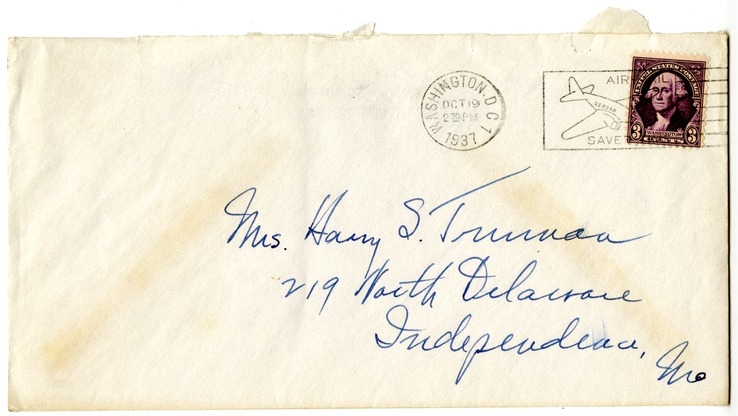 WASHINGTON, D.C. 1
OCT 19
2 30 PM
1937
AIR MAIL
SAVE
UNITED STATES POSTAGE
3 WASHINGTON 3
Mrs. Harry S. Truman
219 North Delaware
Independence,
Mo